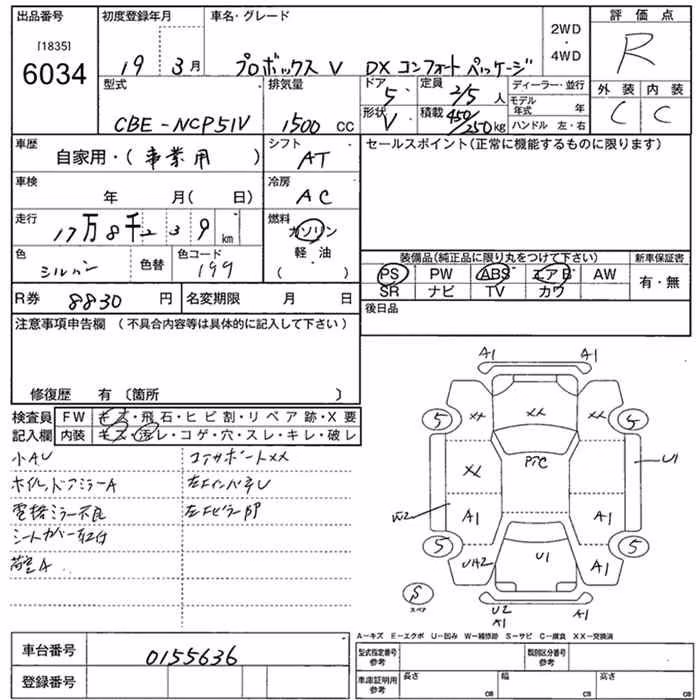 出品番号 初度登録年月 車名・グレード 2WD・4WD 評価点
[1835]
6034 19 3月 プロボックス V DX コンフォートパッケージ R
型式 排気量 ドア 5 定員 2/5人 ディーラー・並行 外装 内装
CBE-NCP51V 1500cc 形状 V 積載 450/250kg モデル年式 年 C C
ハンドル 左・右
車歴 自家用・(事業用) シフト AT セールスポイント(正常に機能するものに限ります)
車検 年 月(日) 冷房 AC
走行 17万8千239km 燃料 ガソリン
軽・油
( )
色 シルバー 色替 色コード 199
装備品(純正品に限り丸をつけて下さい) 新車保証書
PS PW ABS エアB AW 有・無
SR ナビ TV カワ
R券 8830円 名変期限 月 日 後日品
注意事項申告欄(不具合内容等は具体的に記入して下さい)
修復歴 有〔箇所 〕
検査員 FW キズ・飛石・ヒビ割・リペア跡・X要
記入欄 内装 キズ・汚レ・コゲ・穴・スレ・キレ・破レ
小A,U コアサポートXX
ホイル,ドアミラーA 左インパネU
電格ミラー不良 左Bピラー凹
シートカバー取付
荷室A
A1 A1
5 XX XX XX 5
PTC
XX U1
W2 A1 A1
5 UH2 U1 A1 5
S
スペア
U2
A1 A1
A-キズ E-エクボ U-凹み W-補修跡 S-サビ C-腐食 XX-交換済
車台番号 0155636 型式指定番号 参考 類別区分番号 参考
登録番号 車庫証明用 参考 長さ cm 幅 cm 高さ cm